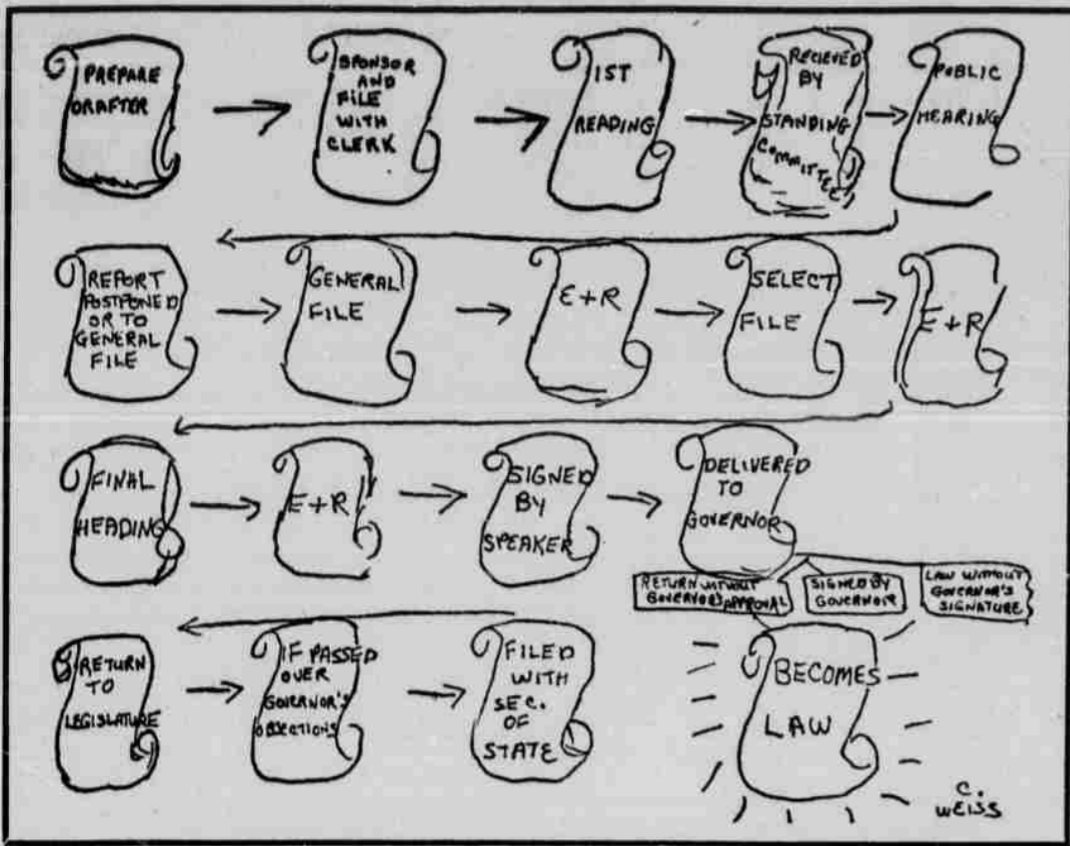 PREPARE
DRAFTER
SPONSOR
AND
FILE
WITH
CLERK
1ST
READING
RECIEVED
BY
STANDING
COMMITTEE
PUBLIC
HEARING
REPORT
POSTPONED
OR TO
GENERAL
FILE
GENERAL
FILE
E+R
SELECT
FILE
E+R
FINAL
HEADING
E+R
SIGNED
BY
SPEAKER
DELIVERED
TO
GOVERNOR
RETURN WITHOUT
GOVERNOR'S APPROVAL
SIGNED BY
GOVERNOR
LAW WITHOUT
GOVERNOR'S
SIGNATURE
RETURN
TO
LEGISLATURE
IF PASSED
OVER
GOVERNOR'S
OBJECTIONS
FILED
WITH
SEC.
OF
STATE
BECOMES
LAW
C.
WEISS